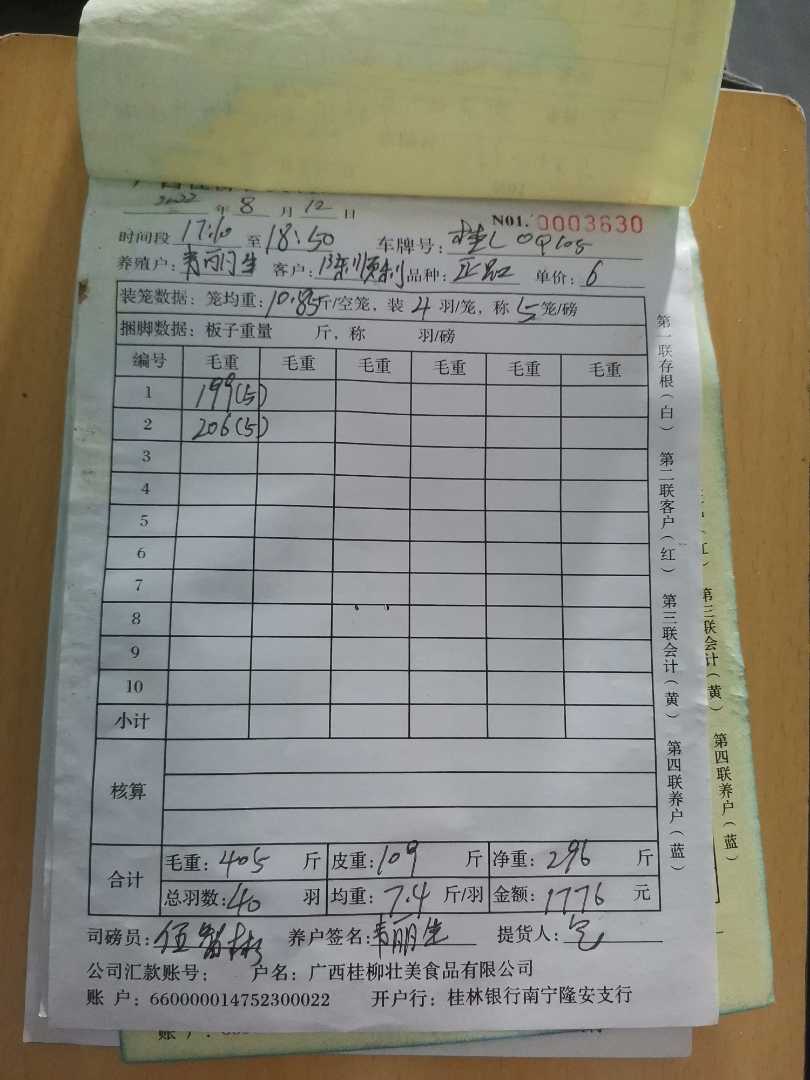 2022 年 8 月 12 日 N01. 0003630
时间段 17:10 至 18:50 车牌号: 桂L
养殖户: 丽生 客户: 顺利 品种: 正品 单价: 6
装笼数据: 笼均重: 10.85 斤/空笼, 装 4 羽/笼, 称 5 笼/磅
捆脚数据: 板子重量 斤, 称 羽/磅
编号 毛重 毛重 毛重 毛重 毛重 毛重
1 199(5)
2 206(5)
3
4
5
6
7
8
9
10
小计
核算
合计 毛重: 405 斤 皮重: 109 斤 净重: 296 斤
总羽数: 40 羽 均重: 7.4 斤/羽 金额: 1776 元
司磅员: 伍智彬 养户签名: 丽生 提货人:
公司汇款账号: 户名: 广西桂柳壮美食品有限公司
账 户: 660000014752300022 开户行: 桂林银行南宁隆安支行
第一联存根(白) 第二联客户(红) 第三联会计(黄) 第四联养户(蓝)
第三联会计(黄) 第四联养户(蓝)
账 户: